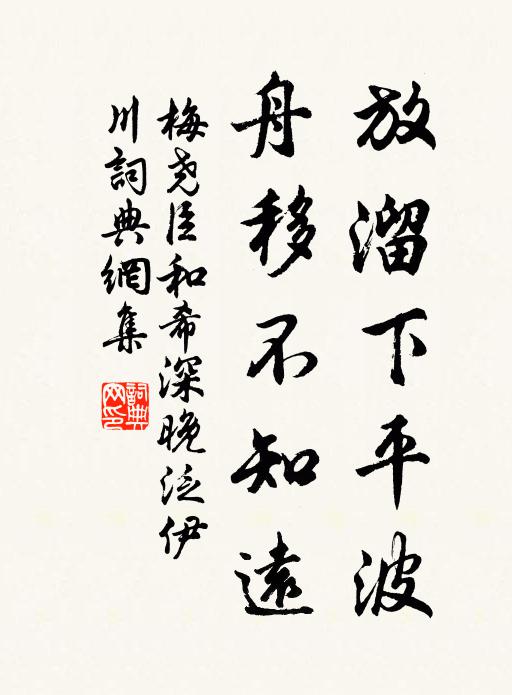 放溜下平波
舟移不知遠
梅尧臣和希深晚泛伊
川詞典網集
詞典
网印